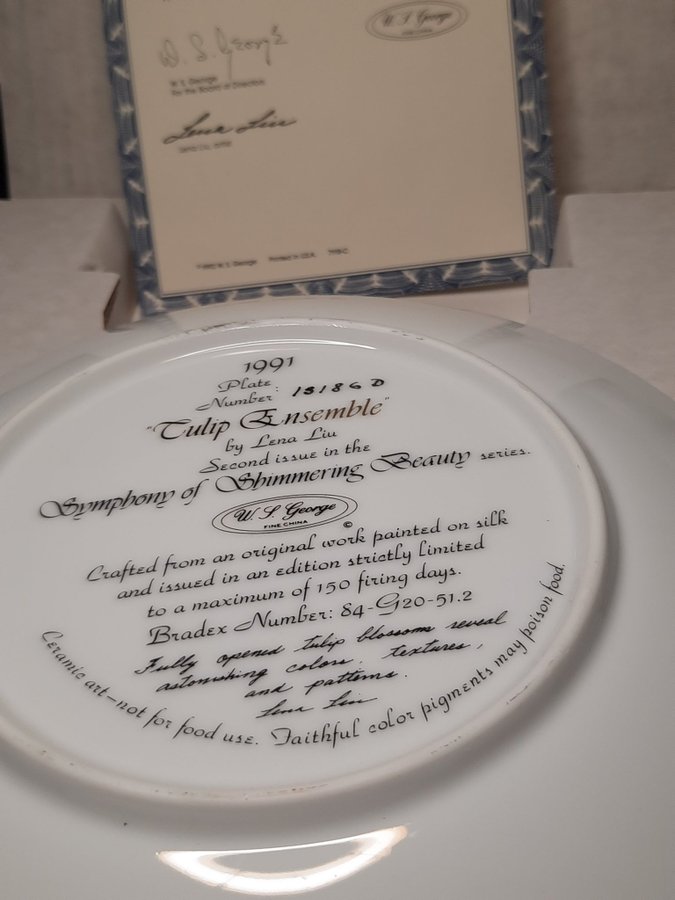 W. S. George
W. S. George
for the Board of Directors
W. S. George
FINE CHINA
Lena Liu
Lena Liu, Artist
1991
Plate
Number: 15186 D
"Tulip Ensemble"
by Lena Liu
Second issue in the
Symphony of Shimmering Beauty series.
W. S. George
FINE CHINA
©
Crafted from an original work painted on silk
and issued in an edition strictly limited
to a maximum of 150 firing days.
Bradex Number: 84-G20-51.2
Fully opened tulip blossoms reveal
astonishing colors, textures,
and patterns.
Lena Liu
Ceramic art—not for food use. Faithful color pigments may poison food.